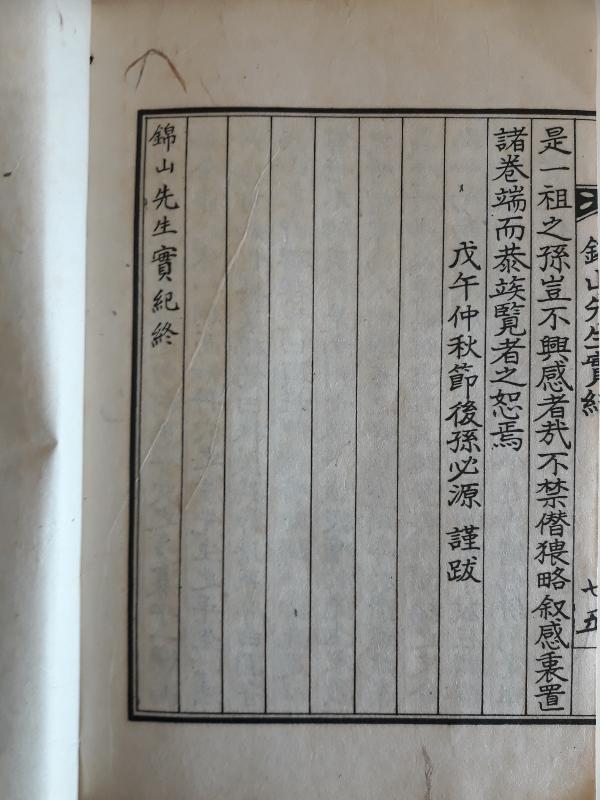 錦山先生實紀
七五
是一祖之孫豈不興感者㢤不禁僭猥略叙感裏置
諸卷端而恭竢覽者之恕焉
戊午仲秋節後孫必源 謹跋
錦山先生實紀終